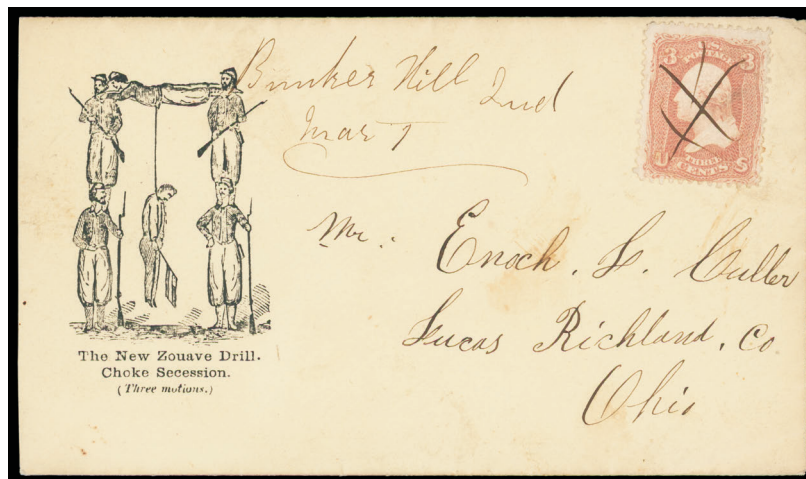 Bunker Hill Ind
Mar 7
3 U.S. 3
POSTAGE
U THREE S
CENTS
Mr. Enoch. L. Culler
Lucas Richland. Co
Ohio
The New Zouave Drill.
Choke Secession.
(Three motions.)